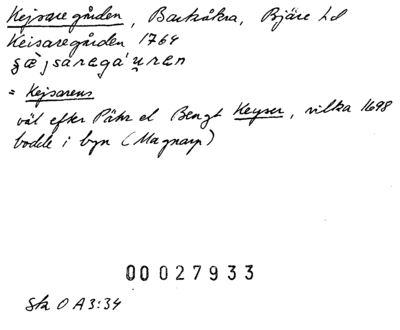 Kejsaregården, Barkåkra, Bjäre hd
Keisaregården 1764
= Kejsarens
väl efter Pähr el Bengt Keyser, vilka 1698
bodde i byn (Magnarp)
00027933
Sk O A3:34